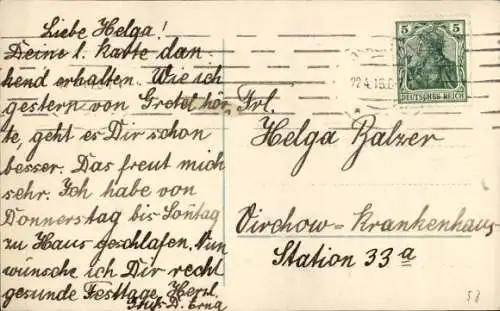 Liebe Helga!
Deine l. Karte dan-
kend erhalten. Wie ich
gestern von Gretel hör-
te, geht es Dir schon
besser. Das freut mich
sehr. Ich habe von
Donnerstag bis Sonntag
zu Haus geschlafen. Nun
wünsche ich Dir recht
gesunde Festtage. Herzl.
Gruß D. Erna
5 5
DEUTSCHES REICH
22.4.16.
Frl.
Helga Balzer
Virchow-Krankenhaus
Station 33a
58